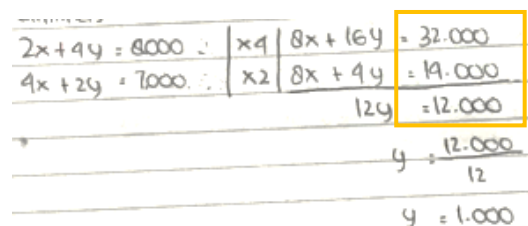 2x + 4y = 8.000 ∴ | x4 | 8x + 16y = 32.000
4x + 2y = 7.000 ∴ | x2 | 8x + 4y = 14.000
12y = 12.000
y = 12.000 / 12
y = 1.000